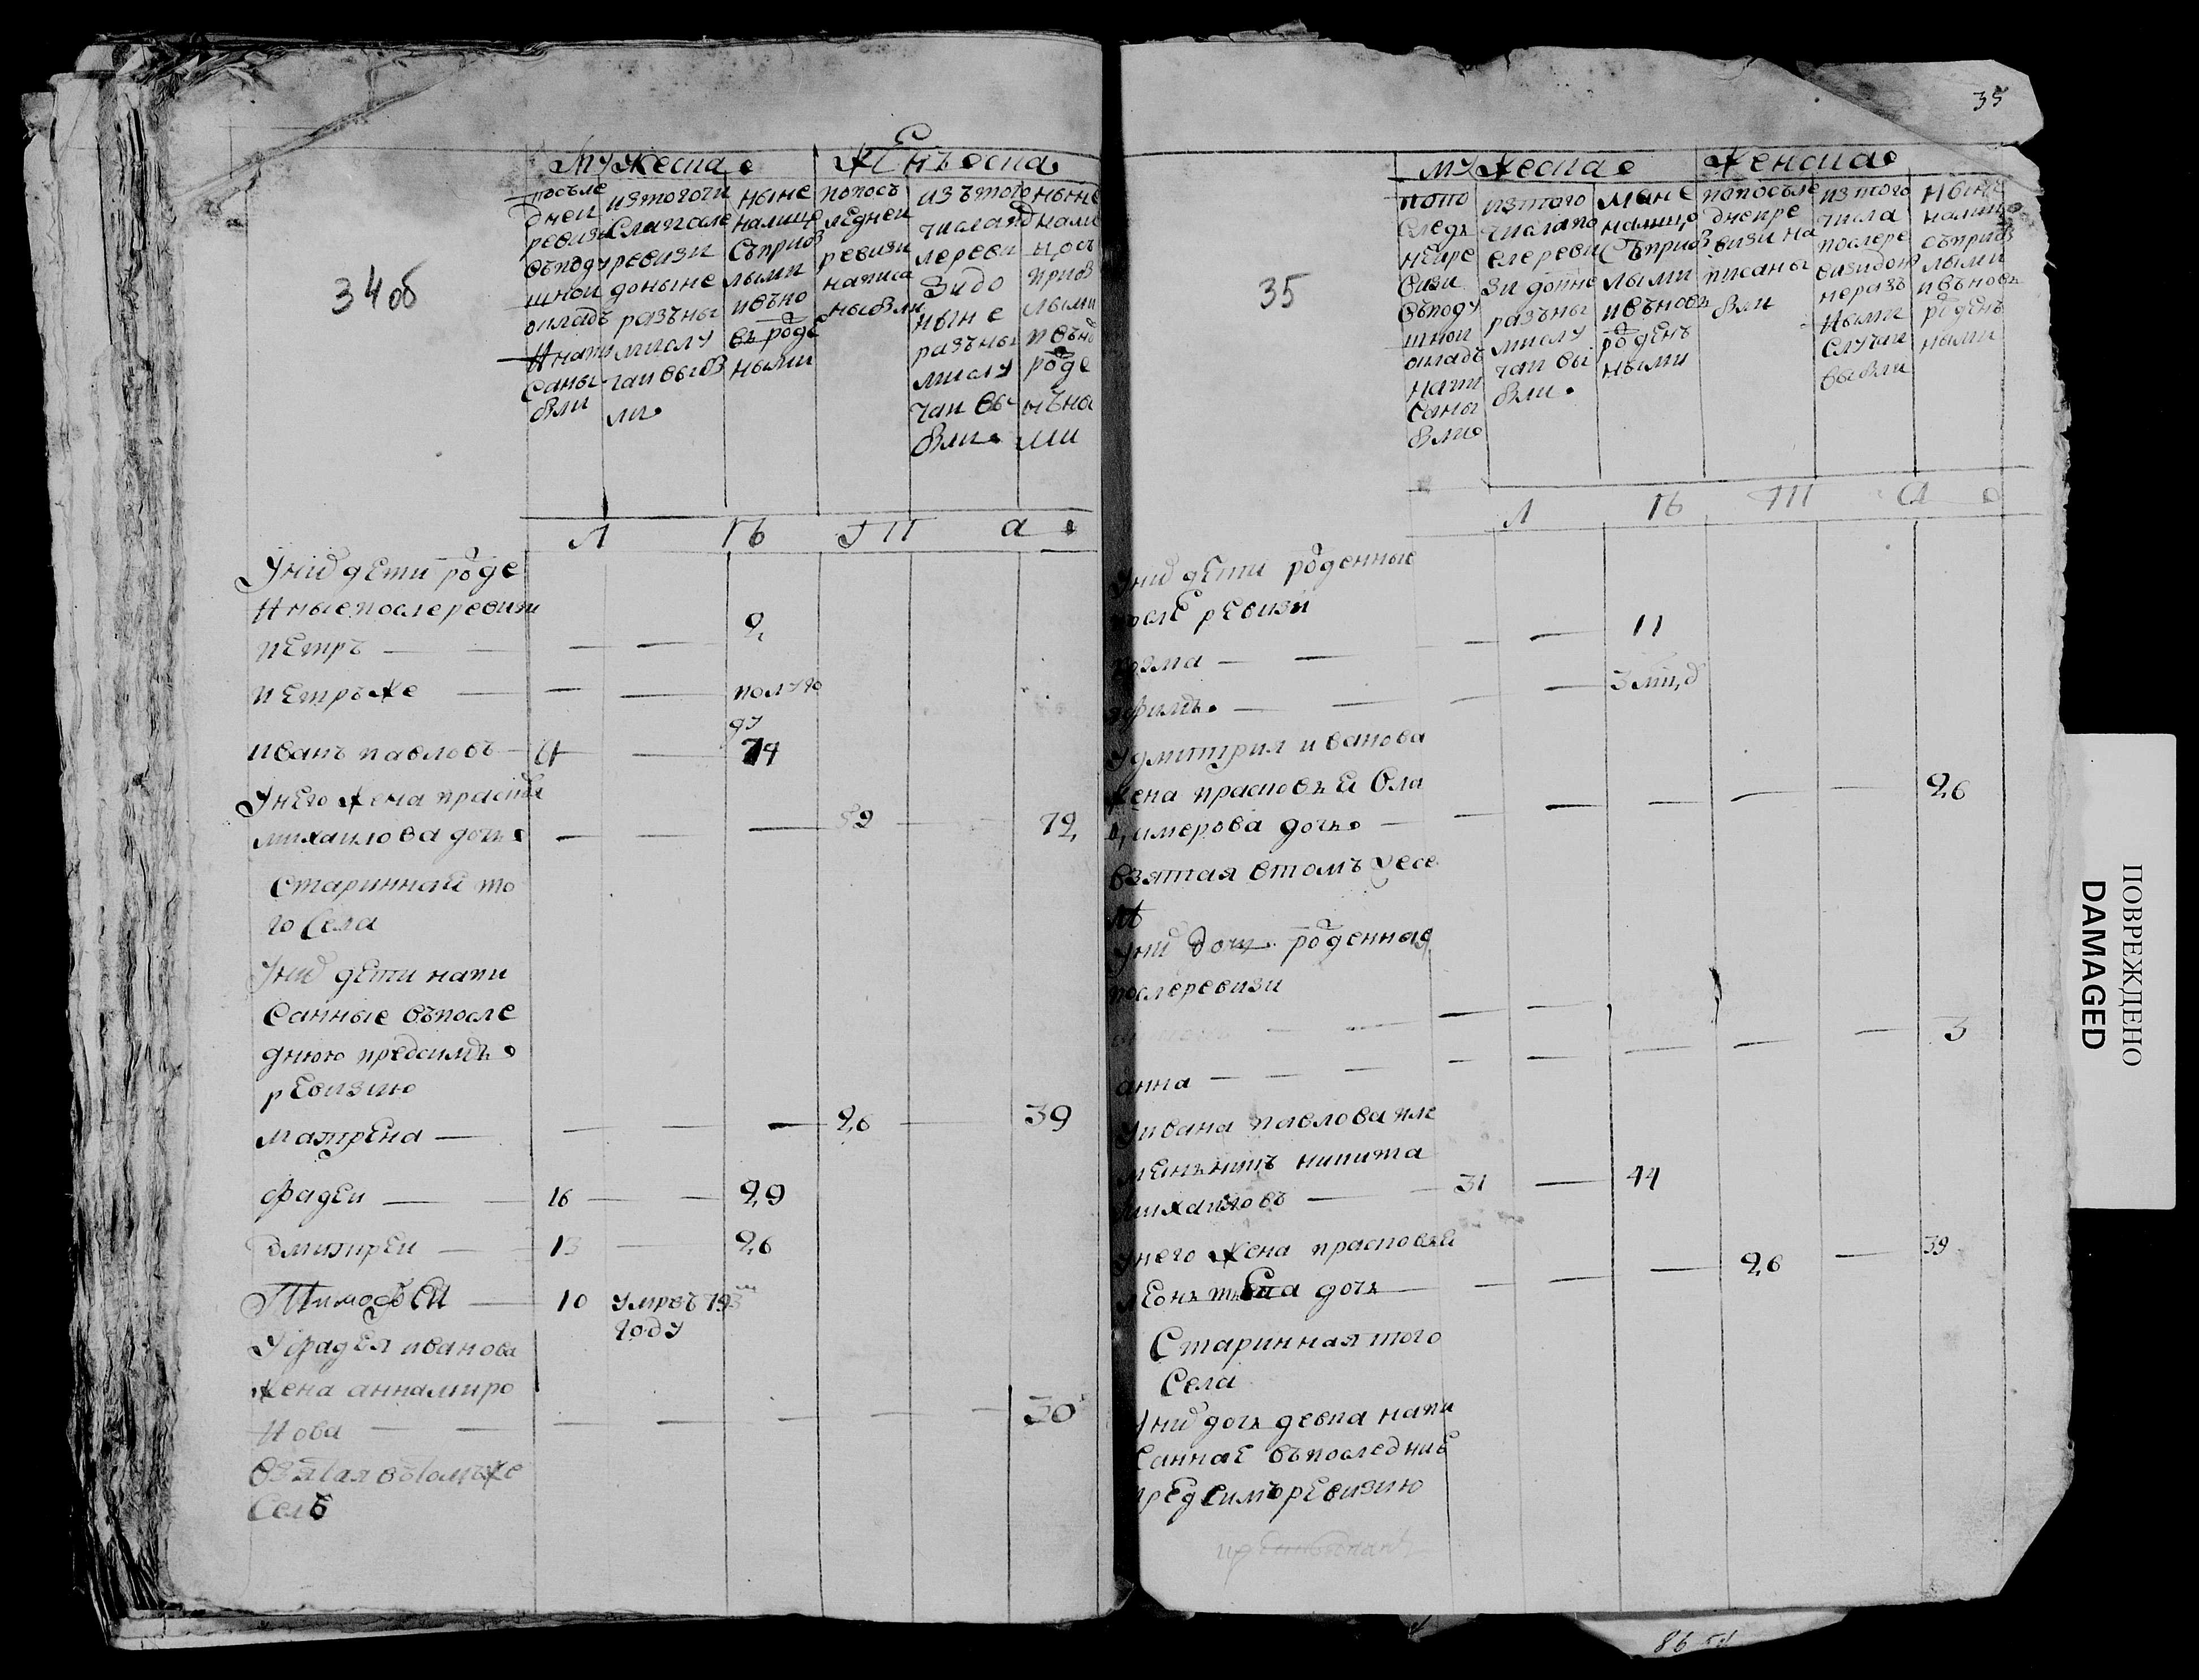 34об
Мужеска
Женъска
после
дней
ревизи
въподу
шной
окладъ
напи
саны
были
изтогочи
слапосле
ревизи
доныне
разъны
мислу
чаи выб
ли
ныне
налице
съприб
лыми
ивъно
въ роде
ными
попосъ
ледней
ревизи
написа
ныбли
изътого
числапо
леревы
зидо
ныне
разъны
мислу
чаи вы
были
ныне
нали
цосъ
приб
лыми
ивъно
роде
нъны
ми
Л Ѣ Т А
Унихъ дети роде
ныепослеревизи
петръ — — — — 2
петръже — — — полуго
ду
иванъ павловъ — — 74
Унего жена прасков
михаилова дочь — — — 72
Стариннаи то
го Села
Унихъ дети напи
Санные въпосле
днюю предсимъ
ревизию
матрена — — — — 26 — 39
фадеи — — 16 — — 29
дмитреи — 13 — 26
Тимофеи — 10 умреъ 793
году
Уфадея иванова
жена аннамиро
нова — — — — — — — 30
Взятая вътомъже
Селѣ
35
35
Мужеска
Женска
попо
следъ
нейре
визи
въподу
шной
окладъ
напи
саны
были
изтого
числапо
слереви
зи доныне
разъны
мислу
чаи вы
были
ныне
налице
съприб
лыми
ивъновъ
роденъ
ными
попосъле
днейре
визи на
писаны
были
изтого
числа
послере
визидоны
неразъ
ными
случаи
выбыли
ныне
налице
съприб
лыми
ивъновъ
роденъ
ными
Л Ѣ Т А
Унихъ дети роденные
после ревизи
козма — — — — 11
— — — 3 мцд
Удмитрия иванова
жена прасковъи Вла
димерова дочь — — — — — — 26
взятая втомъ же се
ле
Унихъ дочь роденная
послеревизи
— — — — — — 3
анна — — — — — — —
Уивана павлова пле
меньникъ никита
михаиловъ — — 31 — 44
Унего жена прасковеи
леонътьева дочь — — — 26 — 39
Стариннаятого
Села
Унихъ дочь девка напи
саннае въпоследние
предсимъревизию
ПОВРЕЖДЕНО
DAMAGED